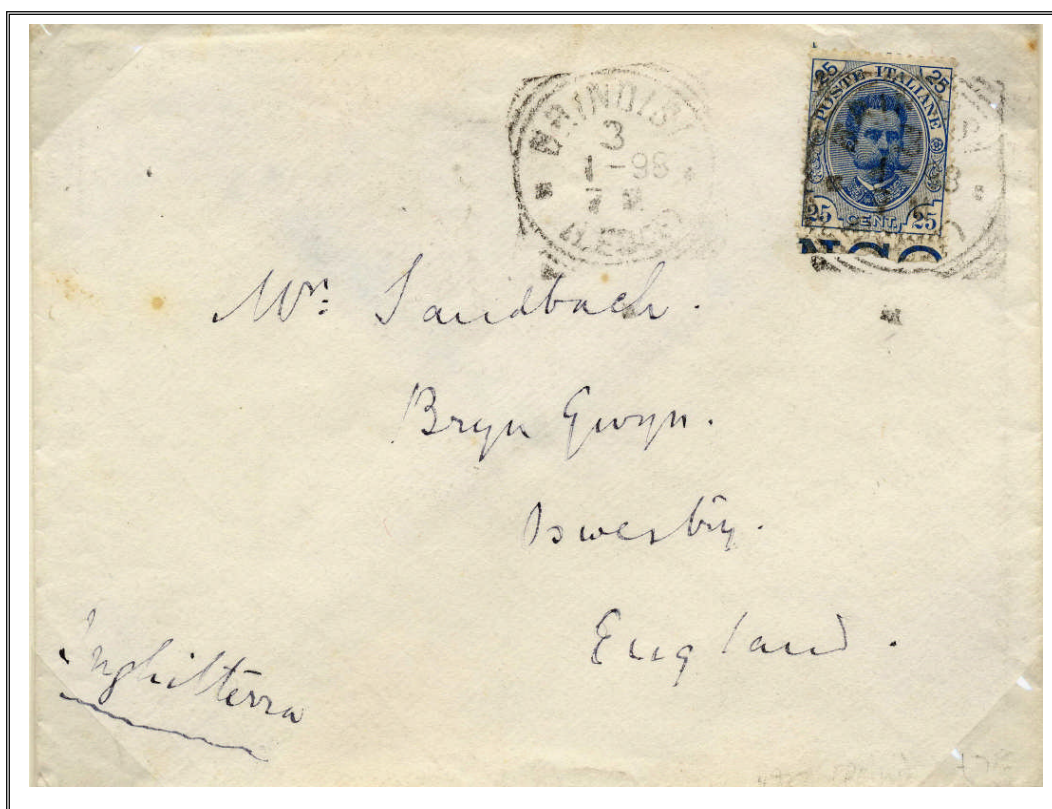 BRINDISI
3
1-98
7 M
(LECCE)
POSTE ITALIANE
25 25
25 CENT. 25
NGO
Mrs Sandbach.
Bryn Gwyn.
Oswestry.
England.
Inghilterra